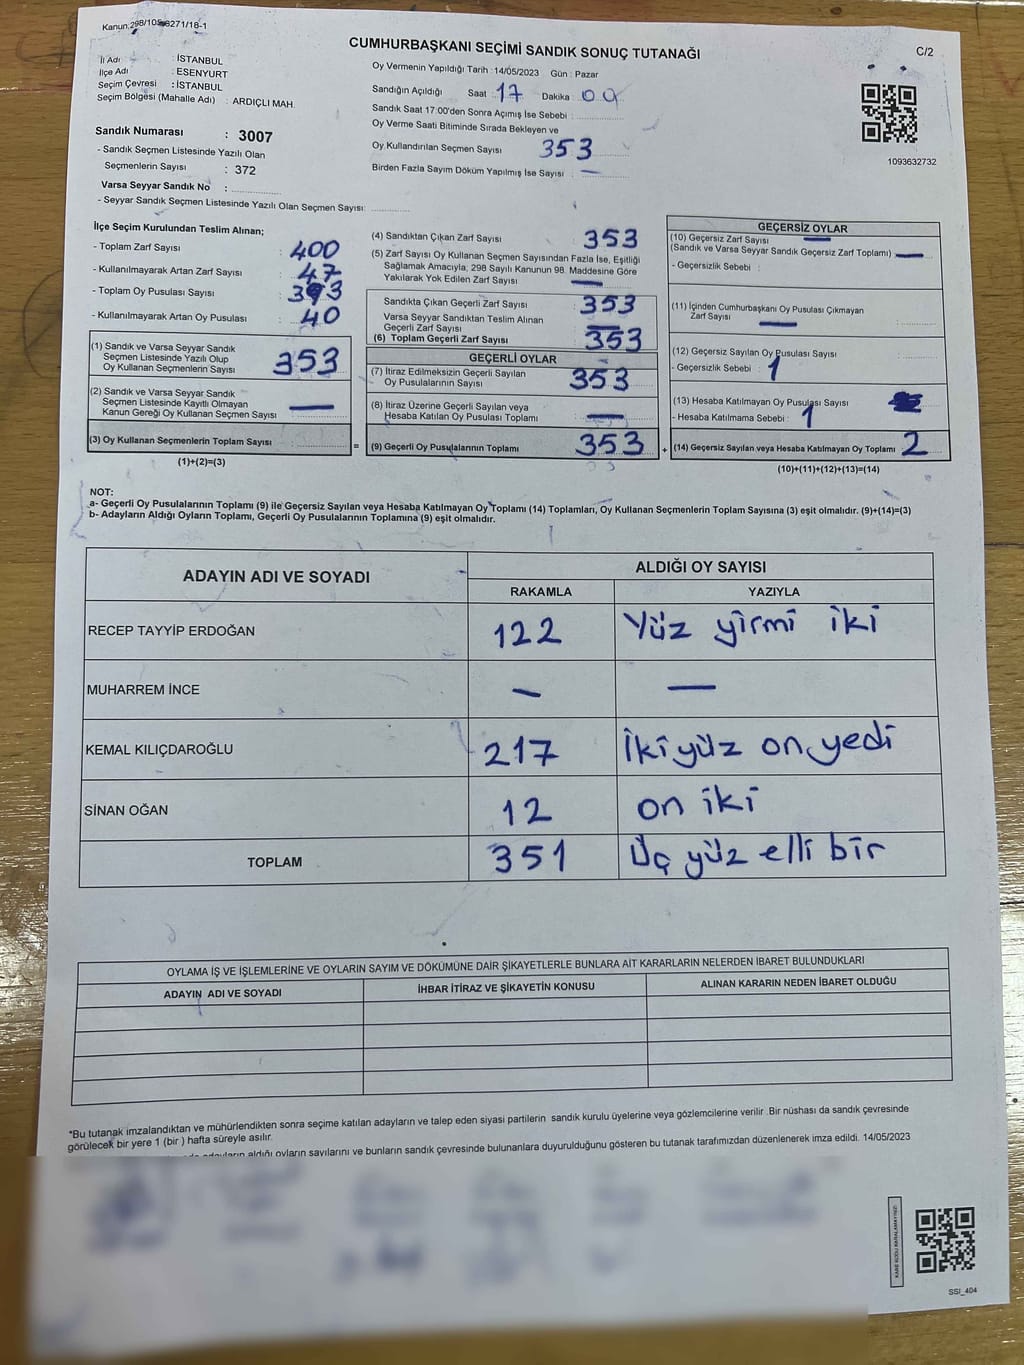 Kanun:298/105-6271/18-1
CUMHURBAŞKANI SEÇİMİ SANDIK SONUÇ TUTANAĞI
C/2
İl Adı : İSTANBUL
İlçe Adı : ESENYURT
Seçim Çevresi : İSTANBUL
Seçim Bölgesi (Mahalle Adı) : ARDIÇLI MAH.
Sandık Numarası : 3007
- Sandık Seçmen Listesinde Yazılı Olan
Seçmenlerin Sayısı : 372
Varsa Seyyar Sandık No :
- Seyyar Sandık Seçmen Listesinde Yazılı Olan Seçmen Sayısı:
Oy Vermenin Yapıldığı Tarih : 14/05/2023 Gün : Pazar
Sandığın Açıldığı Saat 17 Dakika : 09
Sandık Saat 17:00'den Sonra Açımış İse Sebebi :
Oy Verme Saati Bitiminde Sırada Bekleyen ve
Oy Kullandırılan Seçmen Sayısı 353
Birden Fazla Sayım Döküm Yapılmış İse Sayısı : —
1093632732
İlçe Seçim Kurulundan Teslim Alınan;
- Toplam Zarf Sayısı : 400
- Kullanılmayarak Artan Zarf Sayısı : 47
- Toplam Oy Pusulası Sayısı : 393
- Kullanılmayarak Artan Oy Pusulası : 40
(1) Sandık ve Varsa Seyyar Sandık
Seçmen Listesinde Yazılı Olup
Oy Kullanan Seçmenlerin Sayısı : 353
(2) Sandık ve Varsa Seyyar Sandık
Seçmen Listesinde Kayıtlı Olmayan
Kanun Gereği Oy Kullanan Seçmen Sayısı : —
(3) Oy Kullanan Seçmenlerin Toplam Sayısı : =
(1)+(2)=(3)
(4) Sandıktan Çıkan Zarf Sayısı : 353
(5) Zarf Sayısı Oy Kullanan Seçmen Sayısından Fazla İse, Eşitliği
Sağlamak Amacıyla, 298 Sayılı Kanunun 98. Maddesine Göre
Yakılarak Yok Edilen Zarf Sayısı : —
Sandıkta Çıkan Geçerli Zarf Sayısı : 353
Varsa Seyyar Sandıktan Teslim Alınan
Geçerli Zarf Sayısı : —
(6) Toplam Geçerli Zarf Sayısı : 353
GEÇERLİ OYLAR
(7) İtiraz Edilmeksizin Geçerli Sayılan
Oy Pusulalarının Sayısı : 353
(8) İtiraz Üzerine Geçerli Sayılan veya
Hesaba Katılan Oy Pusulası Toplamı : —
(9) Geçerli Oy Pusulalarının Toplamı : 353 +
GEÇERSİZ OYLAR
(10) Geçersiz Zarf Sayısı —
(Sandık ve Varsa Seyyar Sandık Geçersiz Zarf Toplamı) : —
- Geçersizlik Sebebi :
(11) İçinden Cumhurbaşkanı Oy Pusulası Çıkmayan
Zarf Sayısı : —
(12) Geçersiz Sayılan Oy Pusulası Sayısı :
- Geçersizlik Sebebi : 1
(13) Hesaba Katılmayan Oy Pusulası Sayısı
- Hesaba Katılmama Sebebi : 1
(14) Geçersiz Sayılan veya Hesaba Katılmayan Oy Toplamı : 2
(10)+(11)+(12)+(13)=(14)
NOT:
a- Geçerli Oy Pusulalarının Toplamı (9) ile Geçersiz Sayılan veya Hesaba Katılmayan Oy Toplamı (14) Toplamları, Oy Kullanan Seçmenlerin Toplam Sayısına (3) eşit olmalıdır. (9)+(14)=(3)
b- Adayların Aldığı Oyların Toplamı, Geçerli Oy Pusulalarının Toplamına (9) eşit olmalıdır.
ADAYIN ADI VE SOYADI ALDIĞI OY SAYISI
RAKAMLA YAZIYLA
RECEP TAYYİP ERDOĞAN 122 Yüz yirmi iki
MUHARREM İNCE — —
KEMAL KILIÇDAROĞLU 217 İkiyüz on yedi
SİNAN OĞAN 12 on iki
TOPLAM 351 Üç yüz elli bir
OYLAMA İŞ VE İŞLEMLERİNE VE OYLARIN SAYIM VE DÖKÜMÜNE DAİR ŞİKAYETLERLE BUNLARA AİT KARARLARIN NELERDEN İBARET BULUNDUKLARI
ADAYIN ADI VE SOYADI İHBAR İTİRAZ VE ŞİKAYETİN KONUSU ALINAN KARARIN NEDEN İBARET OLDUĞU
*Bu tutanak imzalandıktan ve mühürlendikten sonra seçime katılan adayların ve talep eden siyasi partilerin sandık kurulu üyelerine veya gözlemcilerine verilir .Bir nüshası da sandık çevresinde
görülecek bir yere 1 (bir ) hafta süreyle asılır.
adayların aldığı oyların sayılarını ve bunların sandık çevresinde bulunanlara duyurulduğunu gösteren bu tutanak tarafımızdan düzenlenerek imza edildi. 14/05/2023
KARE KODU KARALAMAYINIZ!
SSI_404